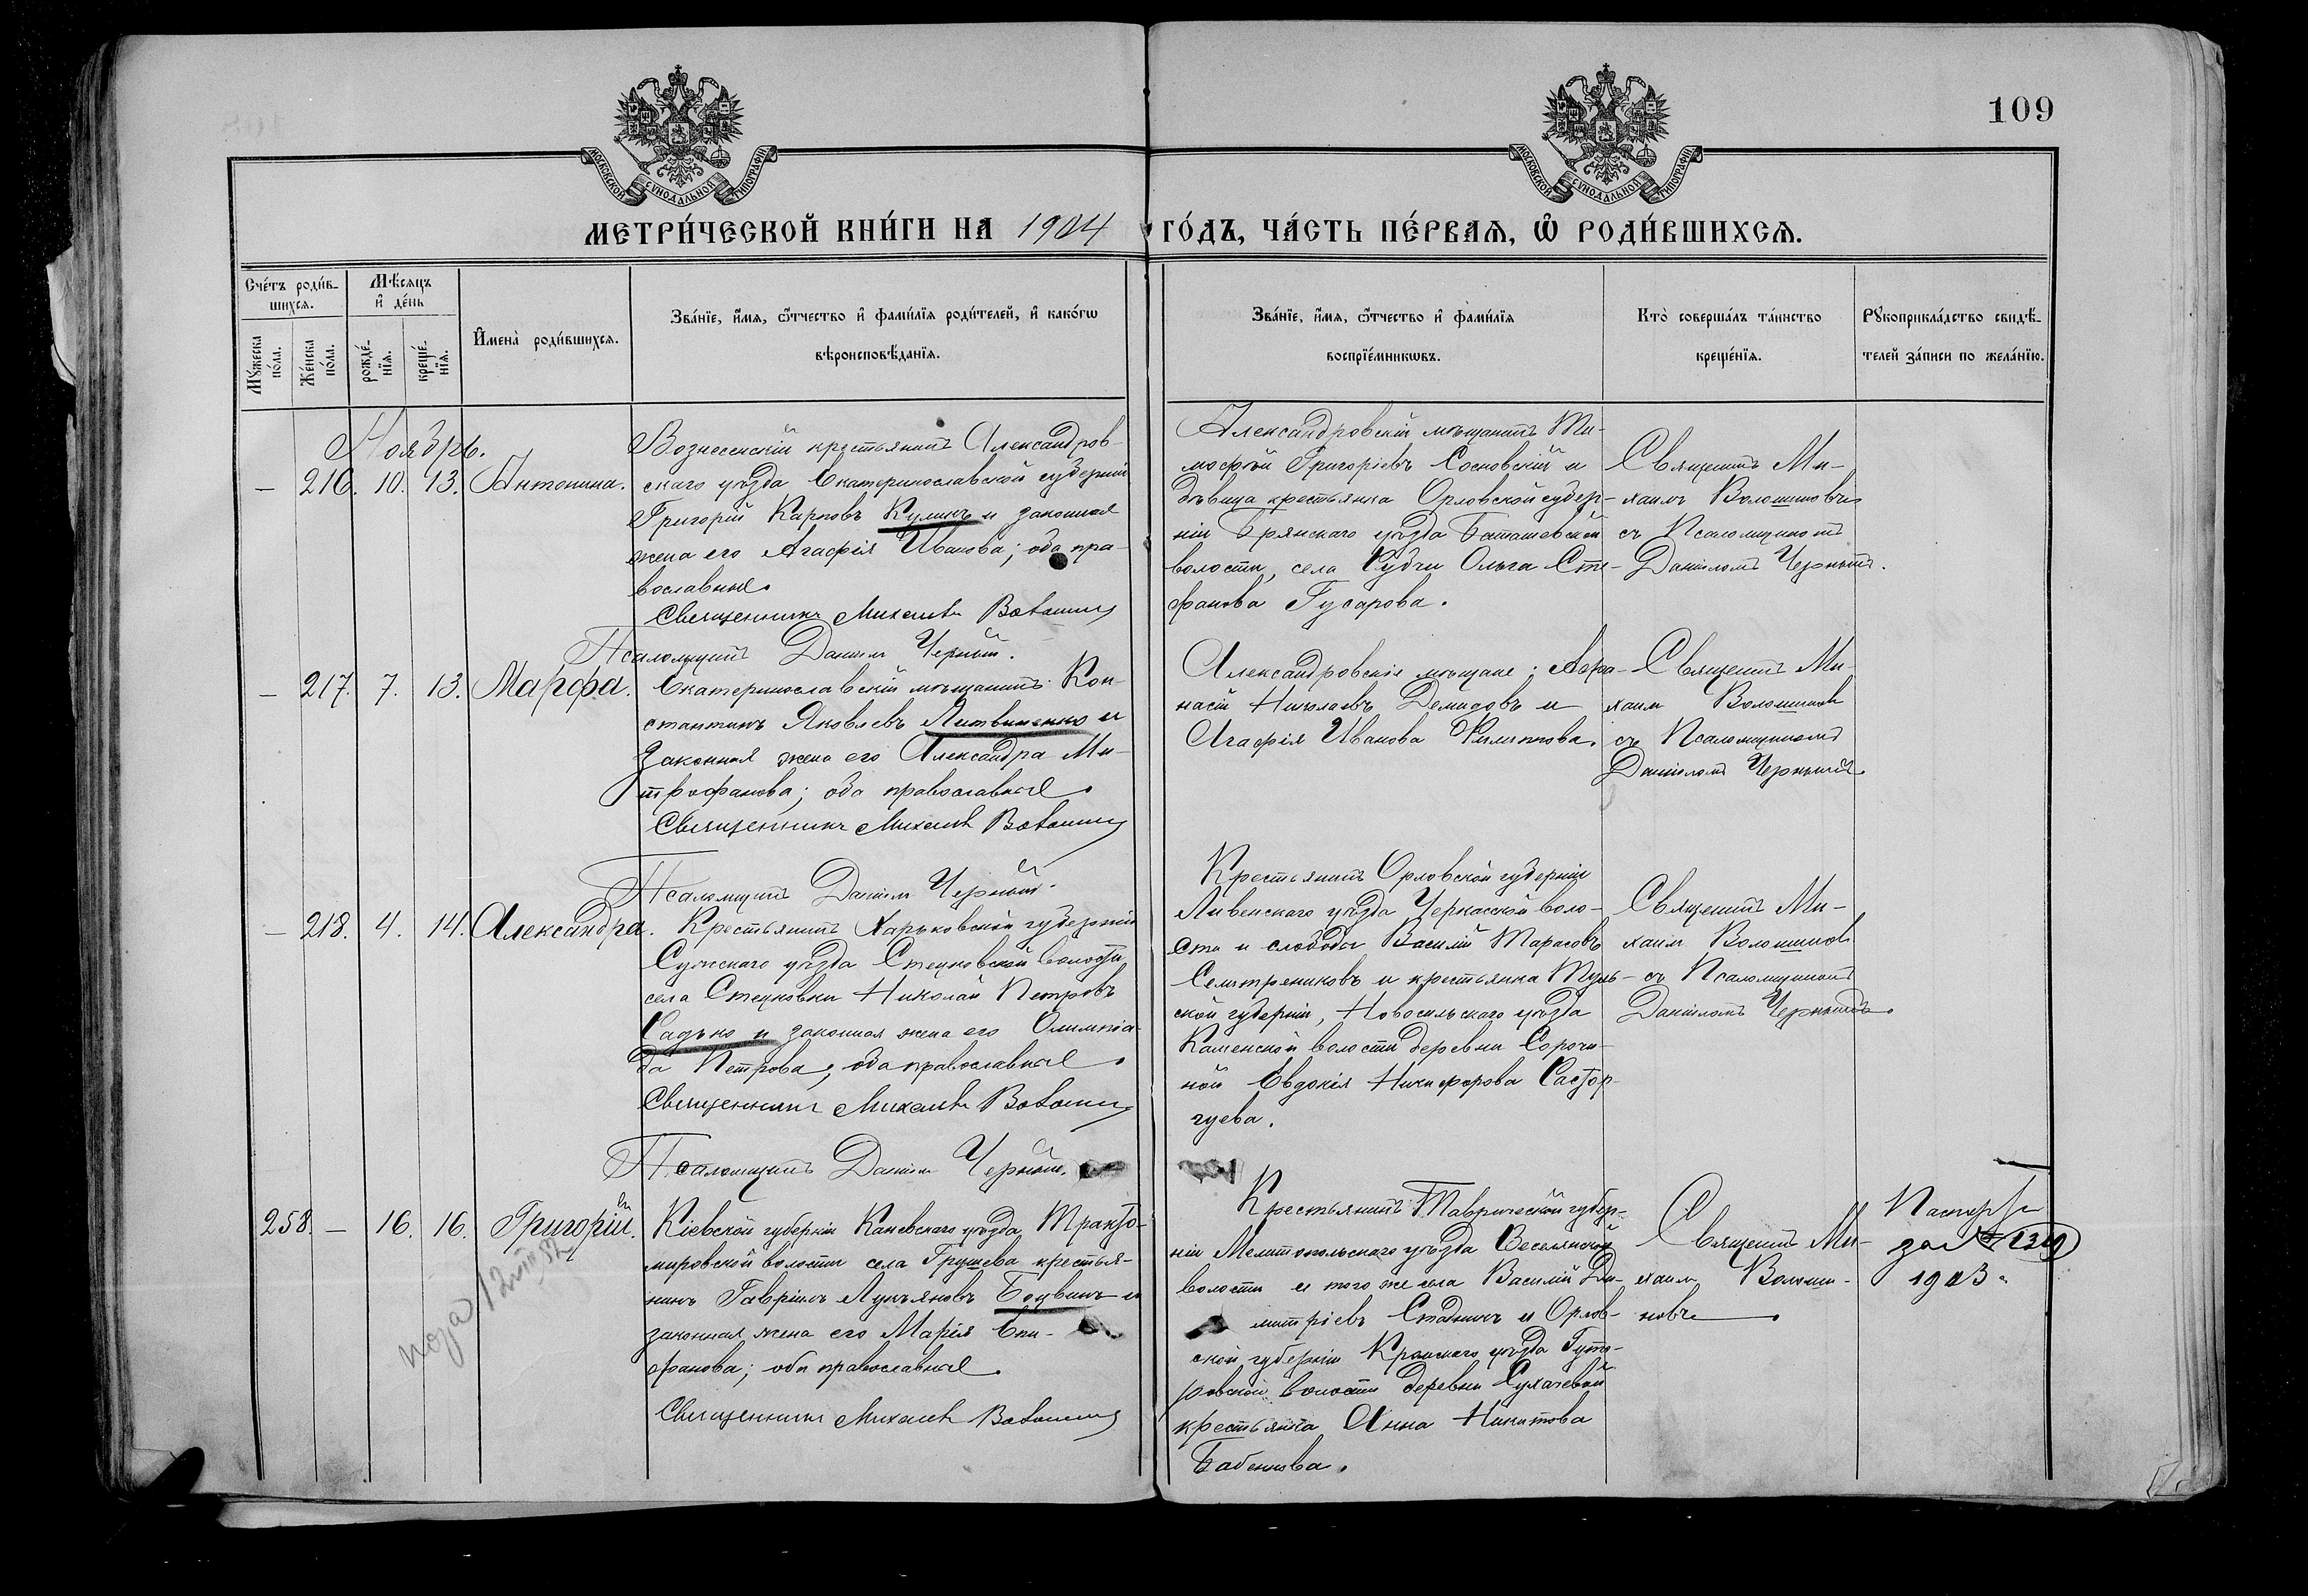 109
МОСКОВСКОЙ СѴНОДАЛЬНОЙ ТИПОГРАФІИ
МОСКОВСКОЙ СѴНОДАЛЬНОЙ ТИПОГРАФІИ
МЕТРИ́ЧЕСКОЙ КНИ́ГИ НА 1904 ГО́ДЪ, ЧА́СТЬ ПЕ́РВАѦ, Ѽ РОДИ́ВШИХСѦ.
Сче́тъ роди́в-
шихсѧ.
Мѣ́сяцъ
и҆ де́нь
Мꙋ́жеска по́ла.
Же́нска по́ла.
рожде́-
нїѧ.
креще́-
нїѧ.
И҆мена̀ роди́вшихсѧ.
Зва́нїе, и҆́мѧ, ѻ҆́тчество и҆ фами́лїѧ роди́телей, и҆ како́гѡ
вѣроисповѣ́данїѧ.
Зва́нїе, и҆́мѧ, ѻ҆́тчество и҆ фами́лїѧ
воспрїе́мникѡвъ.
Кто̀ соверша́лъ та́инство
креще́нїѧ.
Рꙋкоприкла́дство свидѣ́-
телей за́писи по жела́нїю.
Ноябрь.
— 216. 10. 13. Антонина.
Вознесенскій крестьянинъ Александров-
скаго уѣзда Екатеринославской губерніи
Григорій Карповъ Кулинъ и законная
жена его Агафія Иванова; оба пра-
вославные.
Священникъ Михаилъ Волошинъ
Псаломщикъ Даніилъ Черный.
Александровскій мѣщанинъ Ти-
мофей Григоріевъ Сосновскій и
дѣвица крестьянка Орловской губер-
ніи Брянскаго уѣзда Бѣташевской
волости, села Сте-
фанова Гусарова.
Священникъ Ми-
хаилъ Волошиновъ
съ Псаломщикомъ
Даніиломъ Чернымъ.
— 217. 7. 13. Марфа.
Екатеринославскій мѣщанинъ Кон-
стантинъ Яковлевъ Литвиненко и
законная жена его Александра Ми-
трофанова; оба православные.
Священникъ Михаилъ Волошинъ
Псаломщикъ Даніилъ Черный.
Александровскіе мѣщане: Афа-
насій Николаевъ Демидовъ и
Агафія Иванова Филиппова.
Священникъ Ми-
хаилъ Волошиновъ
съ Псаломщикомъ
Даніиломъ Чернымъ.
— 218. 4. 14. Александра.
Крестьянинъ Харьковской губерніи
Сумскаго уѣзда Стецковской волости
села Стецковки Николай Петровъ
Садъко и законная жена его Олимпіа-
да Петрова; оба православные.
Священникъ Михаилъ Волошинъ
Псаломщикъ Даніилъ Черный.
Крестьянинъ Орловской губерніи
Ливенскаго уѣзда Черкасской воло-
сти и слободы Василій Тарасовъ
Селитрениковъ и крестьянка Туль-
ской губерніи, Новосильскаго уѣзда
Каменской волости деревни Сорочи-
ной Евдокія Никифорова Растор-
гуева.
Священникъ Ми-
хаилъ Волошиновъ
съ Псаломщикомъ
Даніиломъ Чернымъ.
258. — 16. 16. Григорій.
Кіевской губерніи Каневскаго уѣзда Тракто-
мировской волости села Грушева крестья-
нинъ Гавріилъ Лукьяновъ Боцвинъ и
законная жена его Марія Епи-
фанова; оба православные.
Священникъ Михаилъ Волошинъ
Крестьянинъ Таврической губер-
ніи Мелитопольскаго уѣзда Веселянской
волости и того же села Василій Ди-
митріевъ Стадникъ и Орлов-
ской губерніи Кромскаго уѣзда Гуто-
ровской волости деревни Сухачевой
крестьянка Анна Никитова
Бабенкова.
Священникъ Ми-
хаилъ Волоши-
новъ
за №
1903